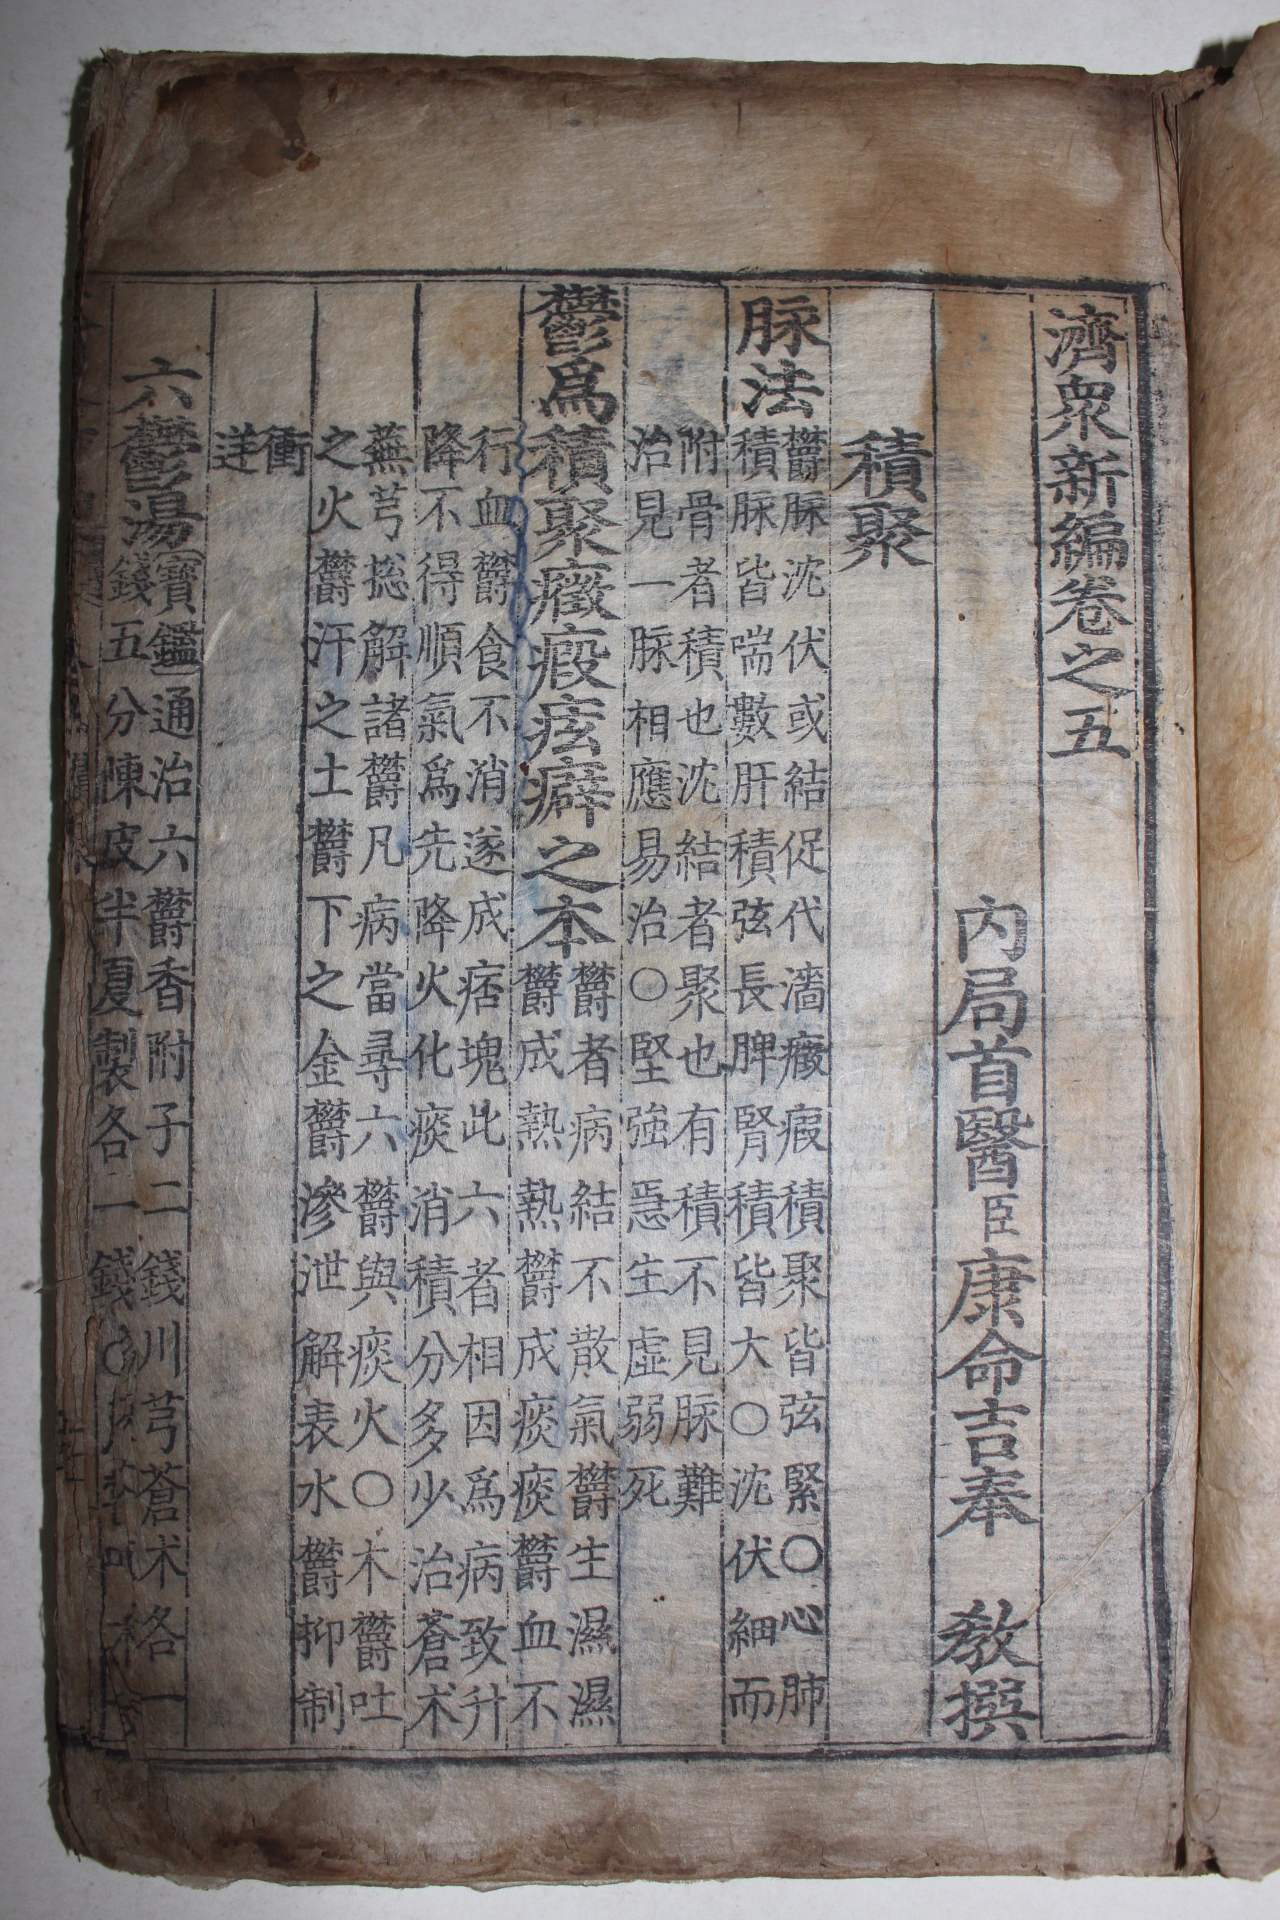 濟衆新編卷之五
內局首醫臣康命吉奉 敎撰
積聚
脉法
欝脉沈伏或結促代濇癥瘕積聚皆弦緊○心肺
積脉皆喘數肝積弦長脾腎積皆大○沈伏細而
附骨者積也沈結者聚也有積不見脉難
治見一脉相應易治○堅強急生虛弱死
鬱爲積聚癥瘕痃癖之本
欝者病結不散氣欝生濕濕
欝成熱熱欝成痰痰欝血不
行血欝食不消遂成痞塊此六者相因爲病致升
降不得順氣爲先降火化痰消積分多少治蒼术
蕪芎捴解諸欝凡病當尋六欝與痰火○木欝吐
之火欝汗之土欝下之金欝滲泄解表水欝抑制
衝
逆
六鬱湯
寶鑑 通治六欝香附子二錢川芎蒼术各一
錢五分陳皮半夏製各一錢